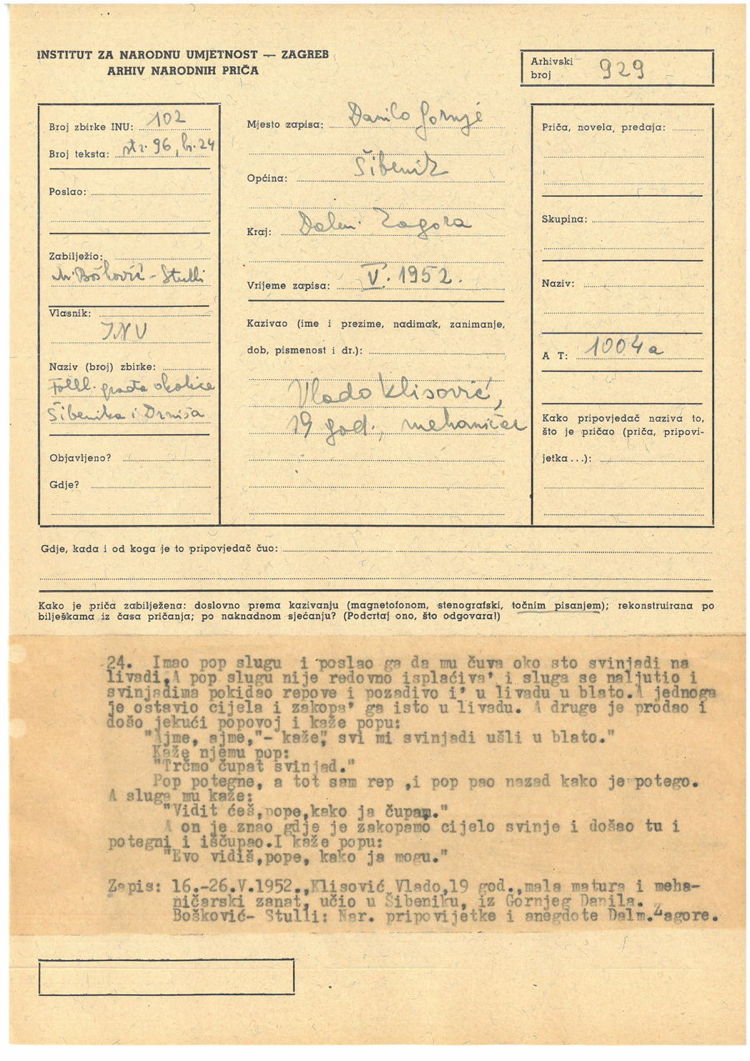 INSTITUT ZA NARODNU UMJETNOST — ZAGREB
ARHIV NARODNIH PRIČA
Arhivski
broj 929
Broj zbirke INU: 102
Broj teksta: str. 96, br. 24
Poslao:
Zabilježio:
M. Bošković - Stulli
Vlasnik:
INU
Naziv (broj) zbirke:
Folkl. građa okolice
Šibenika i Drniša
Objavljeno?
Gdje?
Mjesto zapisa: Danilo Gornje
Općina: Šibenik
Kraj: Dalm. Zagora
Vrijeme zapisa: V. 1952.
Kazivao (ime i prezime, nadimak, zanimanje,
dob, pismenost i dr.):
Vlado Klisović,
19 god., mehaničar
Priča, novela, predaja:
Skupina:
Naziv:
A T: 1004a
Kako pripovjedač naziva to,
što je pričao (priča, pripovi-
jetka . . .):
Gdje, kada i od koga je to pripovjedač čuo:
Kako je priča zabilježena: doslovno prema kazivanju (magnetofonom, stenografski, točnim pisanjem); rekonstruirana po
bilješkama iz časa pričanja; po naknadnom sjećanju? (Podcrtaj ono, što odgovara!)
24. Imao pop slugu i poslao ga da mu čuva oko sto svinjadi na
livadi.A pop slugu nije redovno isplaćiva' i sluga se naljutio i
svinjadima pokidao repove i pozadivo i' u livadu u blato.A jednoga
je ostavio cijela i zakopa' ga isto u livadu. A druge je prodao i
došo jekući popovoj i kaže popu:
"Ajme, ajme,"- kaže," svi mi svinjadi ušli u blato."
Kaže njemu pop:
"Trčmo čupat svinjad."
Pop potegne, a tot sam rep ,i pop pao nazad kako je potego.
A sluga mu kaže:
"Vidit ćeš,pope,kako ja čupam."
A on je znao gdje je zakopamo cijelo svinje i došao tu i
potegni i iščupao.I kaže popu:
"Evo vidiš,pope, kako ja mogu."
Zapis: 16.-26.V.1952.,Klisović Vlado,19 god.,mala matura i meha-
ničarski zanat, učio u Šibeniku, iz Gornjeg Danila.
Bošković- Stulli: Nar. pripovijetke i anegdote Dalm.Zagore.